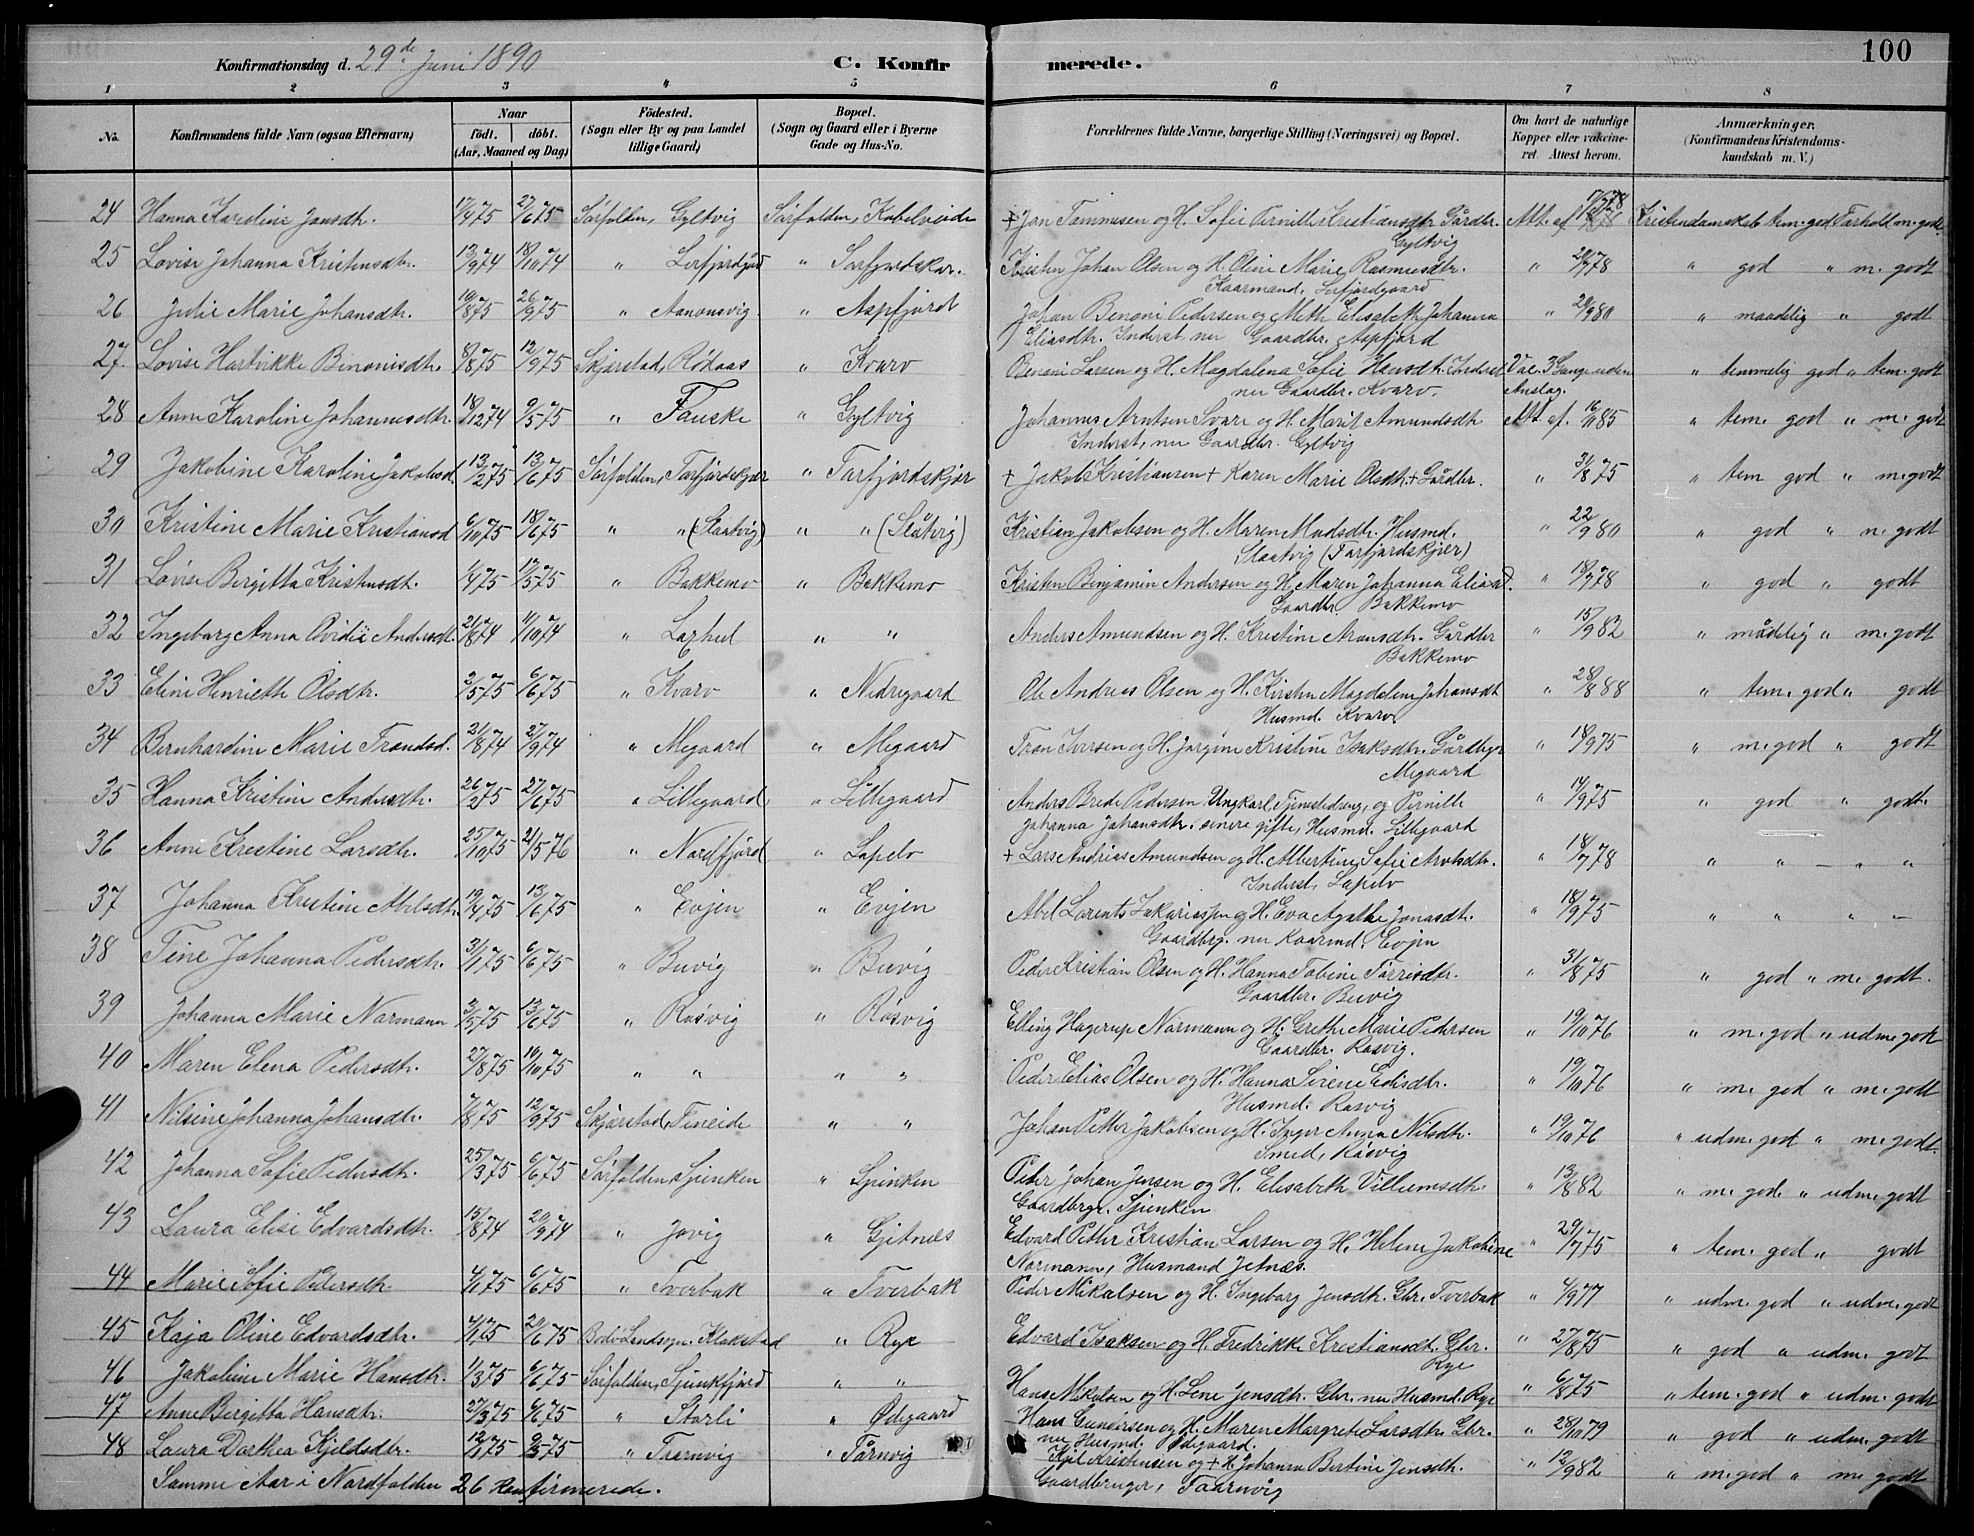 100
Konfirmationsdag d. 29de Juni 1890
C. Konfirmerede.
1 2 3 4 5 6 7 8
No. Konfirmandens fulde Navn (ogsaa Efternavn) Naar født. døbt. (Aar, Maaned og Dag) Fødested. (Sogn eller By og paa Landet tillige Gaard) Bopæl. (Sogn og Gaard eller i Byerne Gade og Hus-No. Forældrenes fulde Navne, borgerlige Stilling (Næringsvei) og Bopæl. Om havt de naturlige Kopper eller vakcineret. Attest herom. Anmærkninger. (Konfirmandens Kristendomskundskab m. V.)
24 Hanna Karoline Jonsdtr. 17/4 75 27/6 75 Sørfolden, Gyltvig Sørfolden, Kobelveide + Jon Tommesen og H. Sofie Pernille Kristiansdtr. Gårdbr. Gyltvig Att. af Kristendomskab tem. god Forhold m. godt
25 Lovise Johanna Kristensdtr. 13/9 74 18/10 74 " Leifjordgård " Sørfjordskar. Kristen Johan Olsen og H. Oline Marie Rasmusdtr. Kaarmand, Leifjordgaard " 20/7 78 " god " m. godt
26 Julie Marie Johansdtr. 19/8 75 26/9 75 " Aanonsvig " Aspfjord Johan Benoni Pedersen og Meth Elisabeth Johanna Eliasdtr. Inderst nu Gaardbr. Aspfjord " 20/9 80 " maadelig " godt
27. Lovise Hartvikke Binonisdtr. 8/8 75 12/9 75 Skjerstad, Rødaas " Kvarv Benoni Larsen og H. Magdalena Sofie Hansdtr. Inderst nu Gaardbr. Kvarv. Vac. 3 Gange uden Anslag. " temmelig god " tem. godt
28 Anne Karoline Johannesdtr. 18/12 74 9/5 75 " Fauske " Gyltvig Johannes Arntsen Svare og H. Marit Amundsdtr Inderst, nu Gaardbr. Gyltvig Att. af. 16/11 85 " tem. god " m. godt
29 Jakobine Karoline Jakobsd. 13/2 75 13/6 75 Sørfolden, Tørfjordskjær " Tørfjordskjær + Jakob Kristiansen + Karen Marie Olsdtr. + Gårdbr. " 31/8 75 " tem god " m. godt
30 Kristine Marie Kristiansd 6/10 75 18/6 75 " " (Slaatvig) " " (Slåtvig) Kristian Jakobsen og H. Maren Madsdtr. Husmd. Slaatvig (Tørfjordskjær) " 22/9 80 " god " m. godt
31 Lovise Birgitta Kristensdtr. 1/4 75 17/5 75 " Bakkemo " Bakkemo Kristen Benjamin Andersen og H. Maren Johanna Eliasd. Gaardbr. Bakkemo " 18/7 78 " god " godt
32 Ingeborg Anna Ovidie Andersdtr. 21/8 74 11/10 74 " Laxhol " " Anders Amundsen og H. Kristine Aronsdtr. Gårdbr Bakkemo " 15/9 82 " mådelig " m. godt
33 Eline Henriette Olsdtr. 2/5 75 6/6 75 " Kvarv " Nedregaard Ole Andreas Olsen og H. Kirsten Magdelene Johansdt Husmd. Kvarv " 28/8 88 " tem. god " godt
34 Bernhardine Marie Trondsd. 21/8 74 27/9 74 " Megaard " Megaard Tron Iversen og H. Jørgine Kristine Isaksdtr. Gårdbgr Megaard " 18/9 75 " m. god " godt
35 Hanna Kristine Andersdtr. 26/2 75 27/6 75 " Lillegaard " Lillegaard Anders Brede Pedersen Ungkarl, Tjenestedreng, og Pernille Johanna Johansdtr. senere gifte, Husmd. Lillegaard " 14/9 75 " god " godt.
36 Anne Kristine Larsdtr. 25/10 75 21/5 76 " Nordfjord " Lapelv + Lars Andreas Amundsen og H. Albertine Sofie Arntsdtr. Inderst, Lapelv " 18/7 78 " " – " "
37 Johanna Kristine Abelsdtr. 19/4 75 13/6 75 " Evjen " Evjen Abel Lorents Zakariassen og H. Eva Agathe Jonasdtr. Gaardbrg. nu Kaarmd. Evjen " 18/9 75 " " " "
38 Tine Johanna Pedersdtr. 31/1 75 6/6 75 " Buvig " Buvig Peder Kristian Olsen og H. Hanna Tobine Torrisdtr. Gaardbr. Buvig " 31/8 75 " god " m. godt.
39 Johanna Marie Normann 3/5 75 13/6 75 " Røsvig " Røsvig Elling Hagerup Normann og H. Grethe Marie Pedersen Gaardbr. Røsvig. " 19/10 76 " m. god " udm. godt
40 Maren Elena Pedersdtr. 27/8 75 10/10 75 " " " " Peder Elias Olsen og H. Hanna Sirene Edisdtr. Husmd. Røsvig " 19/10 76 " m. god " m. godt
41 Nilsine Johanna Johansdtr. 7/8 75 12/9 75 Skjerstad, Fineide " " Johan Petter Jakobsen og H. Inger Anna Nilsdtr. Smed, Røsvig " 19/10 76 " udm. god " m. godt.
42 Johanna Sofie Pedersdtr. 25/3 75 6/6 75 Sørfolden Sjunken " Sjunken Peder Johan Jensen og H. Elisabeth Villumsdtr. Gaardbrgr. Sjunken " 13/8 82 " m. god " udm. godt
43 Laura Elise Edvardsdtr. 15/8 74 20/9 74 " Jøvig " Gjitnæs Edvard Petter Kristian Larsen og H. Helene Jakobine Normann, Husmand Jetnæs. " 29/7 75 " tem. god " godt
44 Marie Sofie Pedersdtr. 4/1 75 6/6 75 " Tverbak " Tverbak Peder Mikalsen og H. Ingeborg Jensdtr. Gbr. Tverbak " 4/9 77 " udm. god " udm. godt
45 Kaja Oline Edvardsdtr. 4/1 75 20/6 75 Bodø Landsogn. Klokstad " Rye Edvard Isaksen og H. Fredrikke Kristiansdtr. Gbr. Rye " 27/8 75 " god " udm. godt
46 Jakobine Marie Hansdtr. 1/3 75 6/6 75 Sørfolden, Sjunkfjord " " Hans Mikalsen og H. Lene Jensdtr. Gbr. nu Husmd. Rye " 6/8 75 " tem. god " udm. godt
47 Anne Birgitta Hansdtr. 27/3 75 6/6 75 " Storli " Ødegaard Hans Gundersen og H. Maren Margrete Larsdtr. Gbr. nu Husmd. Ødegaard. " 28/10 79 " god " udm. godt
48 Laura Dorthea Kjeldsdtr. 12/1 75 9/5 75 " Taarnvig " Tårnvig Kjel Kristensen og + H. Johanna Bertine Jensdtr. Gaardbruger, Taarnvig " 12/9 82 " m. god " m. godt
Samme Aar i Nordfolden 26 Konfirmerede.